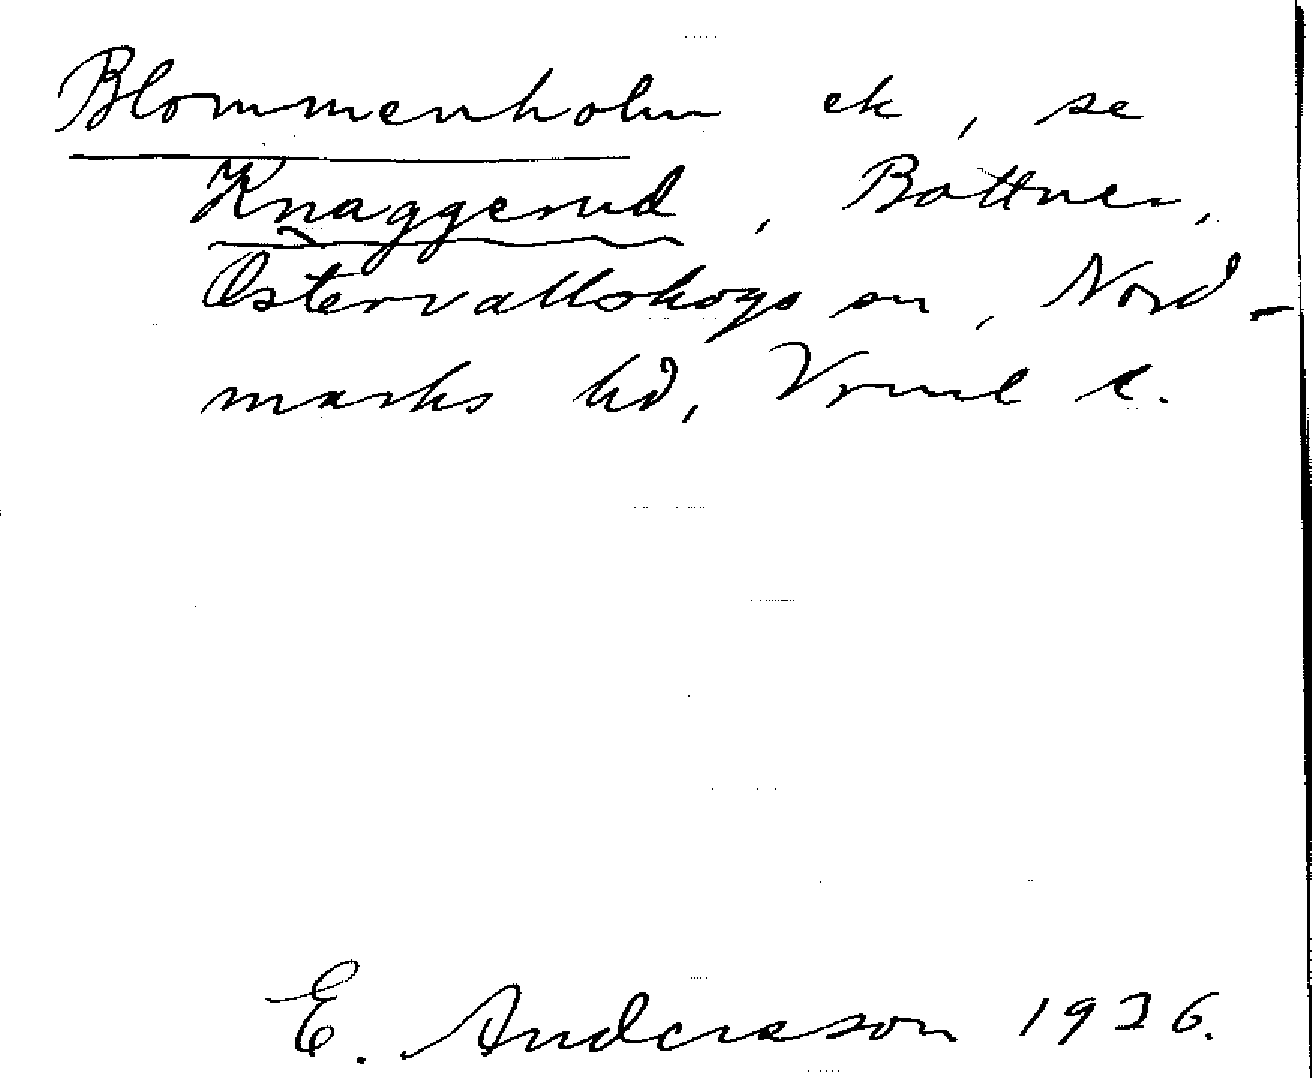 Blommenholm ek, se
Knaggerud, Bottnen,
Östervallskogs sn, Nord-
marks hd, Vrml l.
E. Andersson 1936.